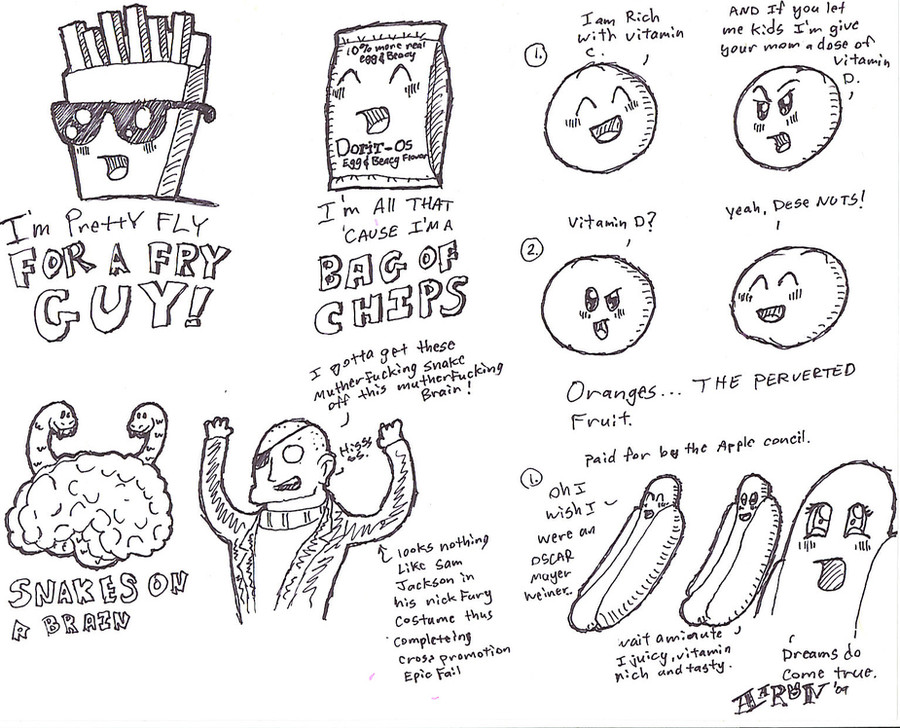 I'm Pretty FLY
FOR A FRY
GUY!
10% more real
egg & Beacy
Dorit-os
Egg & Beacy Flavor
I'm All THAT
'CAUSE I'M A
BAG OF
CHIPS
1.
I am Rich
with vitamin
C.
AND If you let
me kids I'm give
your mom a dose of
vitamin
D.
2.
Vitamin D?
yeah, Dese NUTS!
Oranges... THE PERVERTED
Fruit.
paid for by the Apple concil.
SNAKES ON
A BRAIN
I gotta get these
Mutherfucking snake
off this mutherfucking
Brain!
Hisss
ss.
looks nothing
Like Sam
Jackson in
his nick Fury
Costume thus
completeing
cross promotion
Epic Fail
1.
Oh I
wish I
were an
OSCAR
Muyer
Weiner.
wait amiunute
I juicy, vitamin
rich and tasty.
Dreams do
come true.
AARUN '09